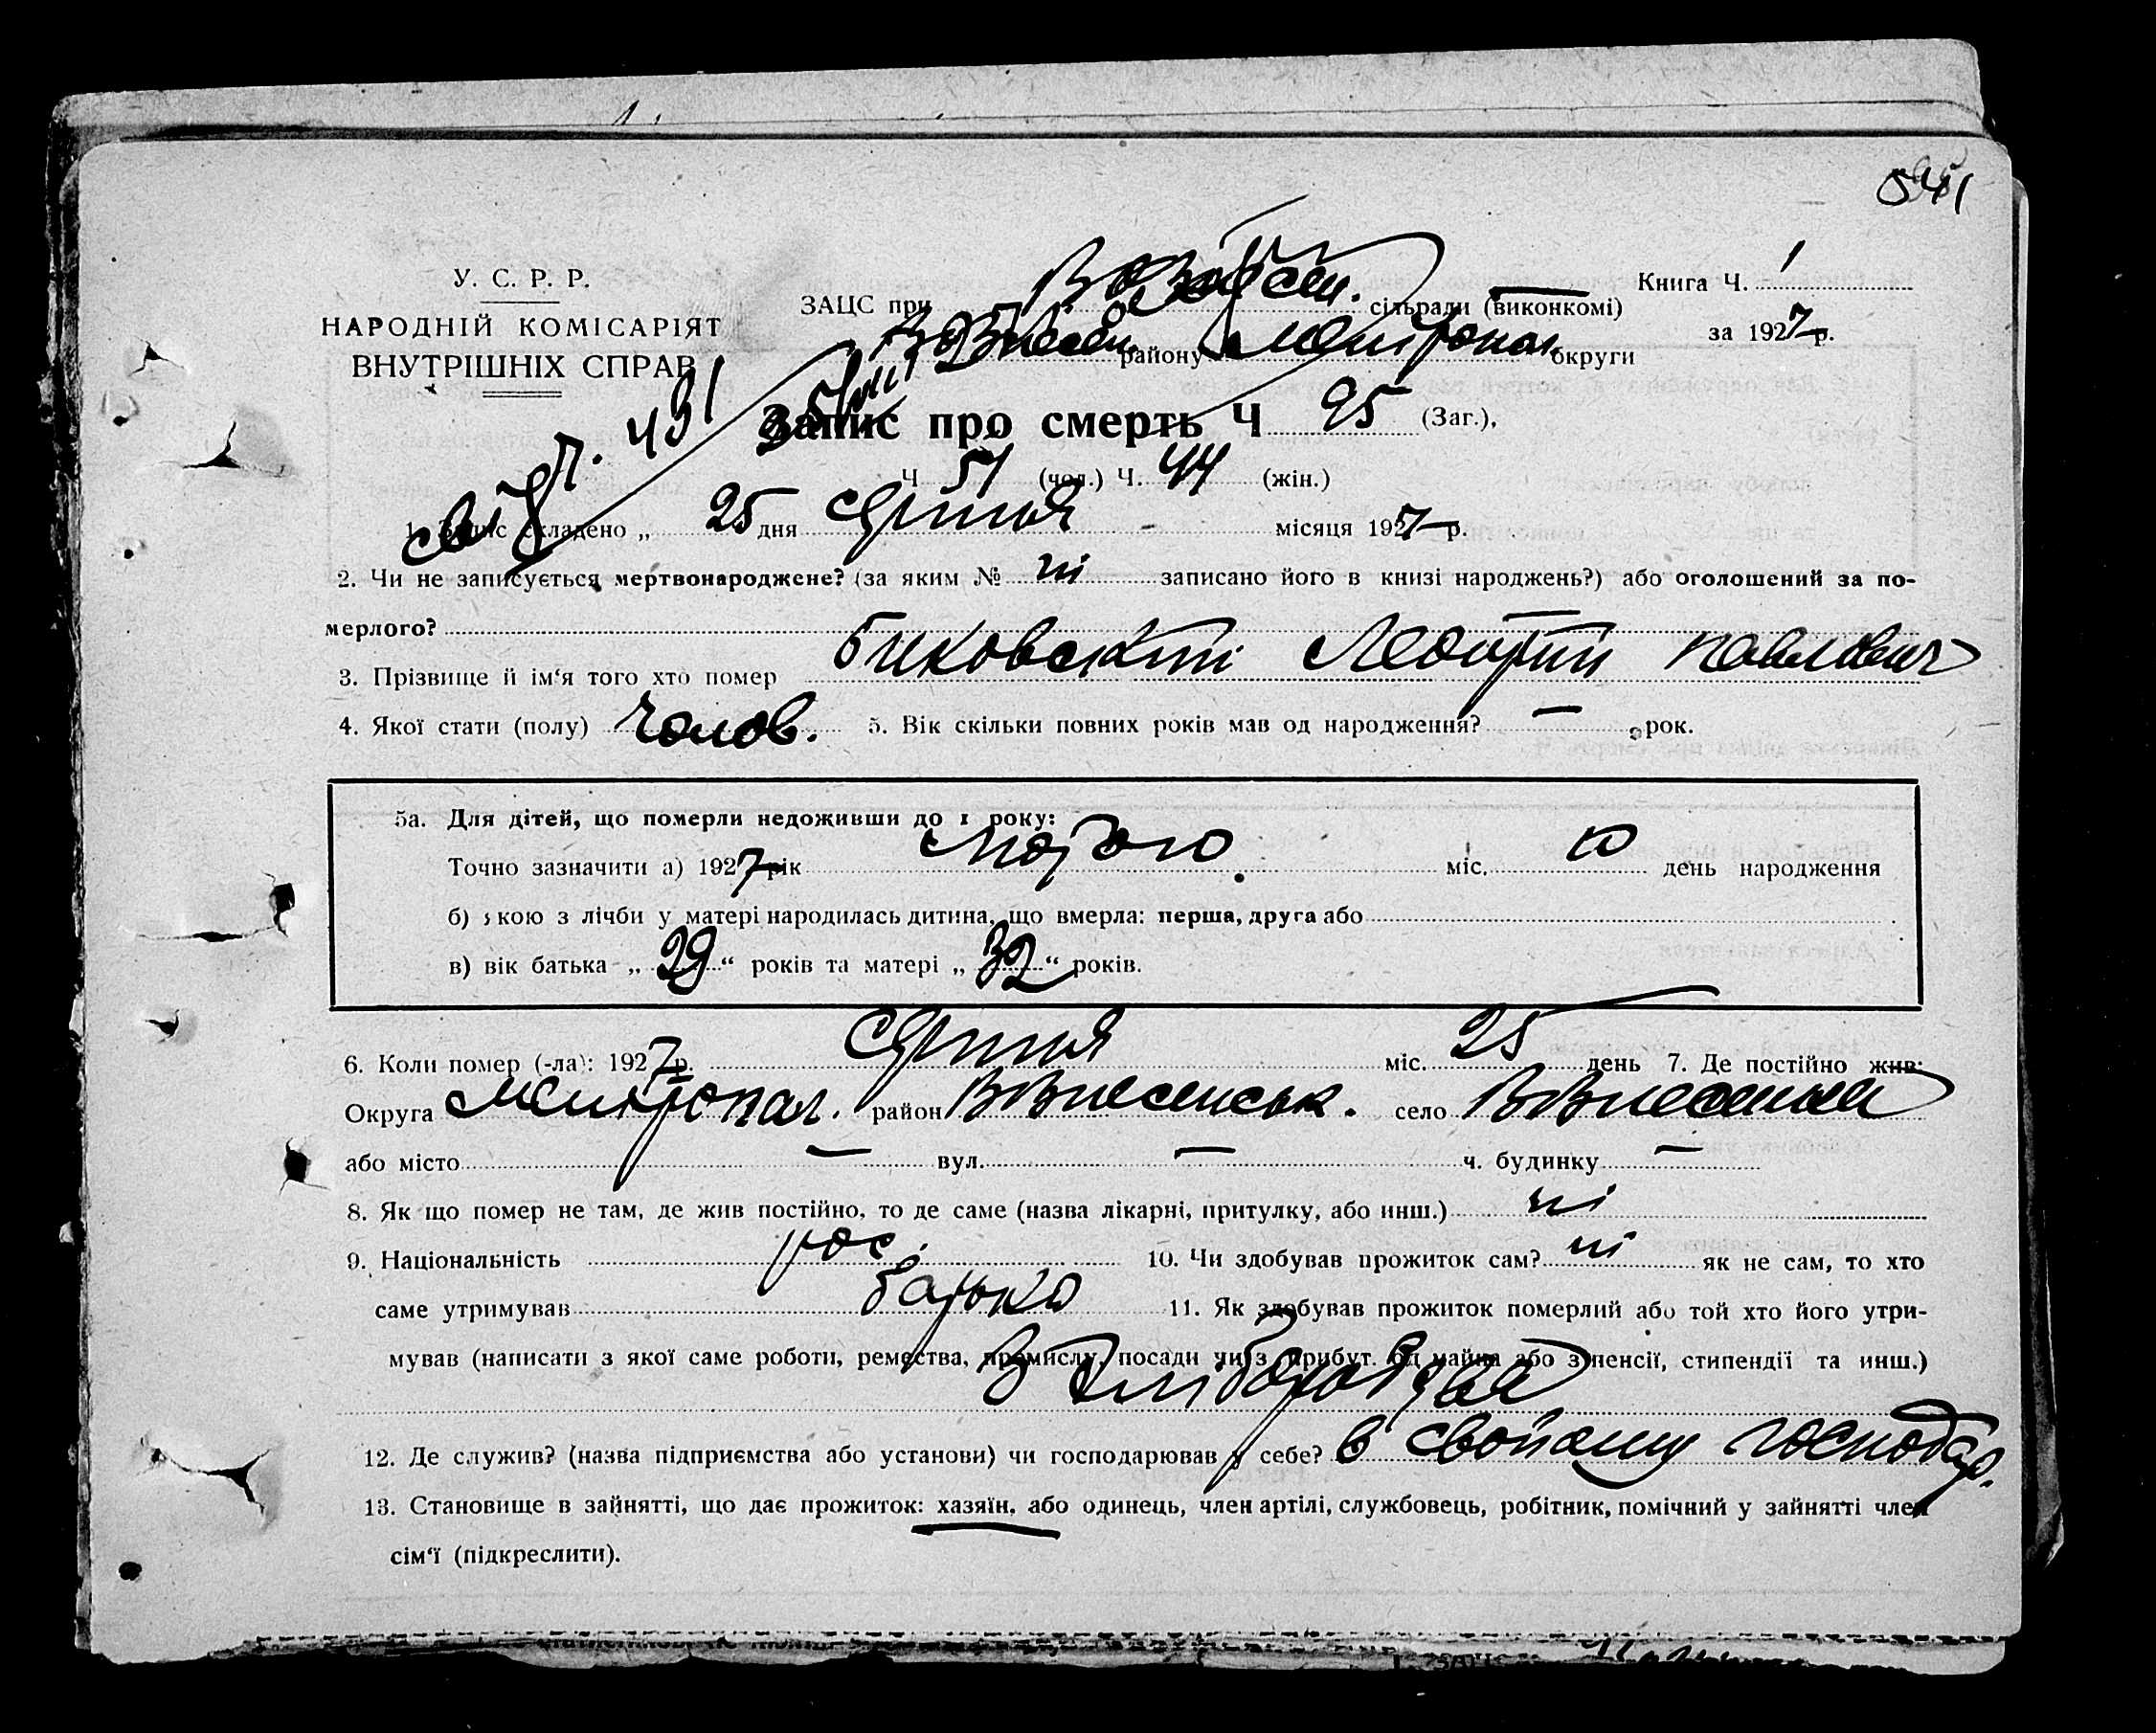 У. С. Р. Р.
НАРОДНІЙ КОМІСАРІЯТ
ВНУТРІШНІХ СПРАВ
ЗАЦС при сільради (виконкомі)
району округи
Книга Ч. 1
за 1927 р.
Запис про смерть Ч 95 (Заг.),
Ч 51 (чол.) Ч. 44 (жін.)
1. Запис складено „ 25 дня серпня місяця 1927 р.
2. Чи не записується мертвонароджене? (за яким № ні записано його в книзі народжень?) або оголошений за по-
мерлого?
3. Прізвище й ім'я того хто помер Биковський Павлович
4. Якої стати (полу) чолов. 5. Вік скільки повних років мав од народження? — рок.
5а. Для дітей, що померли недоживши до 1 року:
Точно зазначити а) 1927 рік лютого міс. 10 день народження
б) якою з лічби у матері народилась дитина, що вмерла: перша, друга або
в) вік батька „ 29 “ років та матері „ 32 “ років.
6. Коли помер (-ла): 1927 р. серпня міс. 25 день 7. Де постійно жив:
Округа Мелітопол. район В Знесенськ. село
або місто — вул. — ч. будинку —
8. Як що помер не там, де жив постійно, то де саме (назва лікарні, притулку, або инш.) ні
9. Національність рос. 10. Чи здобував прожиток сам? ні як не сам, то хто
саме утримував батько 11. Як здобував прожиток померлий або той хто його утри-
мував (написати з якої саме роботи, ремества, промислу, посади чи з прибут. од майна або з пенсії, стипендії та инш.)
З хліборобства
12. Де служив? (назва підприємства або установи) чи господарював у себе? в свойому господар.
13. Становище в зайнятті, що дає прожиток: хазяїн, або одинець, член артілі, службовець, робітник, помічний у зайнятті член
сім'ї (підкреслити).